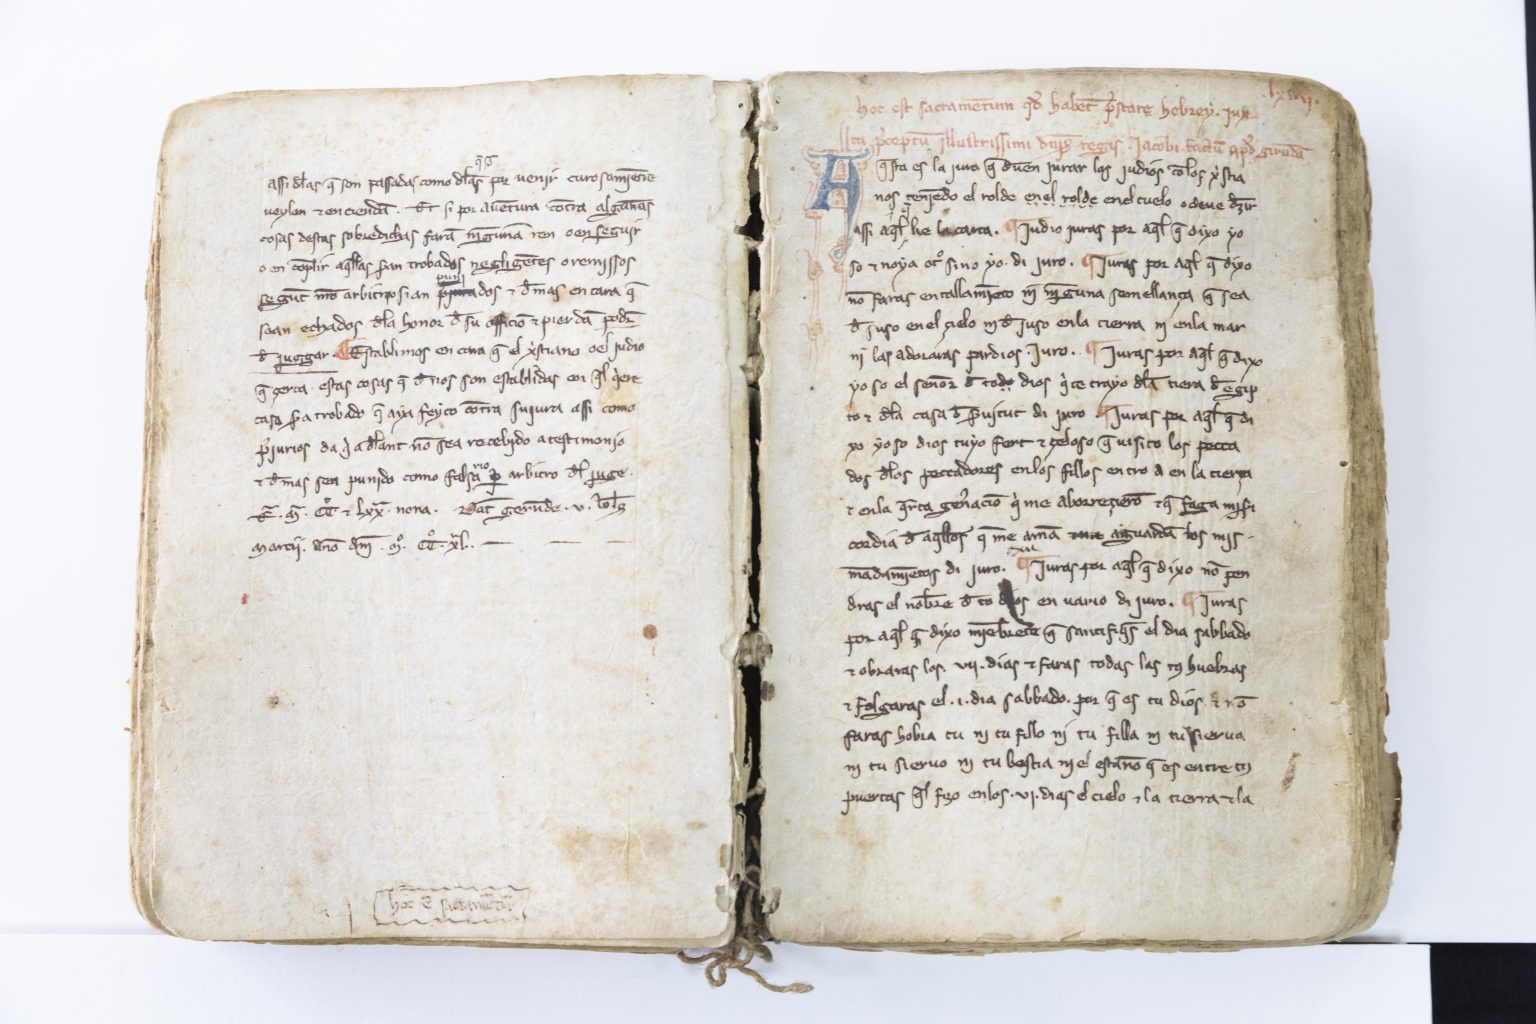 assi dlas q̄ son passadas como dlas q̄ s̄ por venir curosamientre
veylen ⁊ enciendan. Et si por auentura contra algunas
cosas destas sobredichas faran ninguna ren o en seguir
o en conplir aq̄llas s̄an trobados negligētes o remissos
segūt nr̄o arbitrio sian punidos ⁊ dmas encara q̄
sean echados dla honor d su officio ⁊ pierdā podr̄
d jutgar. ¶ Establimos encara q̄ el xp̄stiano o el judio
q̄ cerca estas cosas q̄ d nos son establidas en q̄l q̄ere
caso s̄a trobado q̄ aya feyto contra su jura assi como
p̄jurios da q̄ adlant nō sea recebido a testimonio
⁊ dmas sea punido como falsario por arbitro dl juge.
E. M. CC ⁊ lxx nona. Dat Gerunde. v. kls
Marcii. Ano dni. Mº. CCº. xl.
hoc ē sacramētū
lxvii.
hoc est sacramētum qd habēt p̄stare hebrey. jux
ta p̄ceptū illustrissimi dnj regis Jacobi. factū apd gerundā
Aq̄sta es la jura q̄ duen jurar los judios to los xp̄stia
nos teniēdo el rolde en el rolde en el cuello o deue dzir
assi aq̄l q̄ lie la carta. ¶ Judio juras por aq̄l q̄ dixo yo
so ⁊ no ya otº sino yo. di juro. ¶ Juras por aq̄l q̄ dixo
no faras entallamiēto ni ninguna semellança q̄ sea
d suso en el cielo ni d juso en la tierra ni en la mar
ni las adoraras par dios. Juro. ¶ Juras por aq̄l q̄ dixo
yo so el señor d todo dios q̄ te trayo dla tierra d egip
to ⁊ dla casa d s̄uitut di juro ¶ Juras por aq̄l q̄ di
xo yo so dios tuyo fort ⁊ zeloso q̄ visito los pecca
dos dlos peccadores en los fillos entro a en la tierça
⁊ en la q̄rta gen̄ació q̄ me aborrezierō ⁊ q̄ faga misi
cordia d aq̄llos q̄ me amā aguardā los mis
mādamiētos di juro. ¶ Juras por aq̄l q̄ dixo nō pen
dras el nobre d to dios en vano di juro. ¶ Juras
por aq̄l q̄ dixo miēbrete q̄ santifiq̄s el dia sabbado
⁊ obraras los. vii. dias ⁊ faras todas las tꝯ huebras
⁊ folgaras el. i. dia sabbado. por q̄ es tu dios. ⁊ nō
faras hobra tu ni tu fillo ni tu filla ni tu sierua
ni tu sieruo ni tu bestia ni el estraño q̄ es entre tꝯ
puertas q̄l fizo en los. vi. dias el cielo ⁊ la tierra ⁊ la